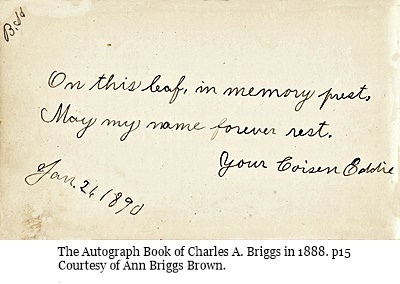 B.dd
On this leaf, in memory prest,
May my name forever rest.
Your Coisen Eddie
Jan. 26 1890
The Autograph Book of Charles A. Briggs in 1888. p15
Courtesy of Ann Briggs Brown.